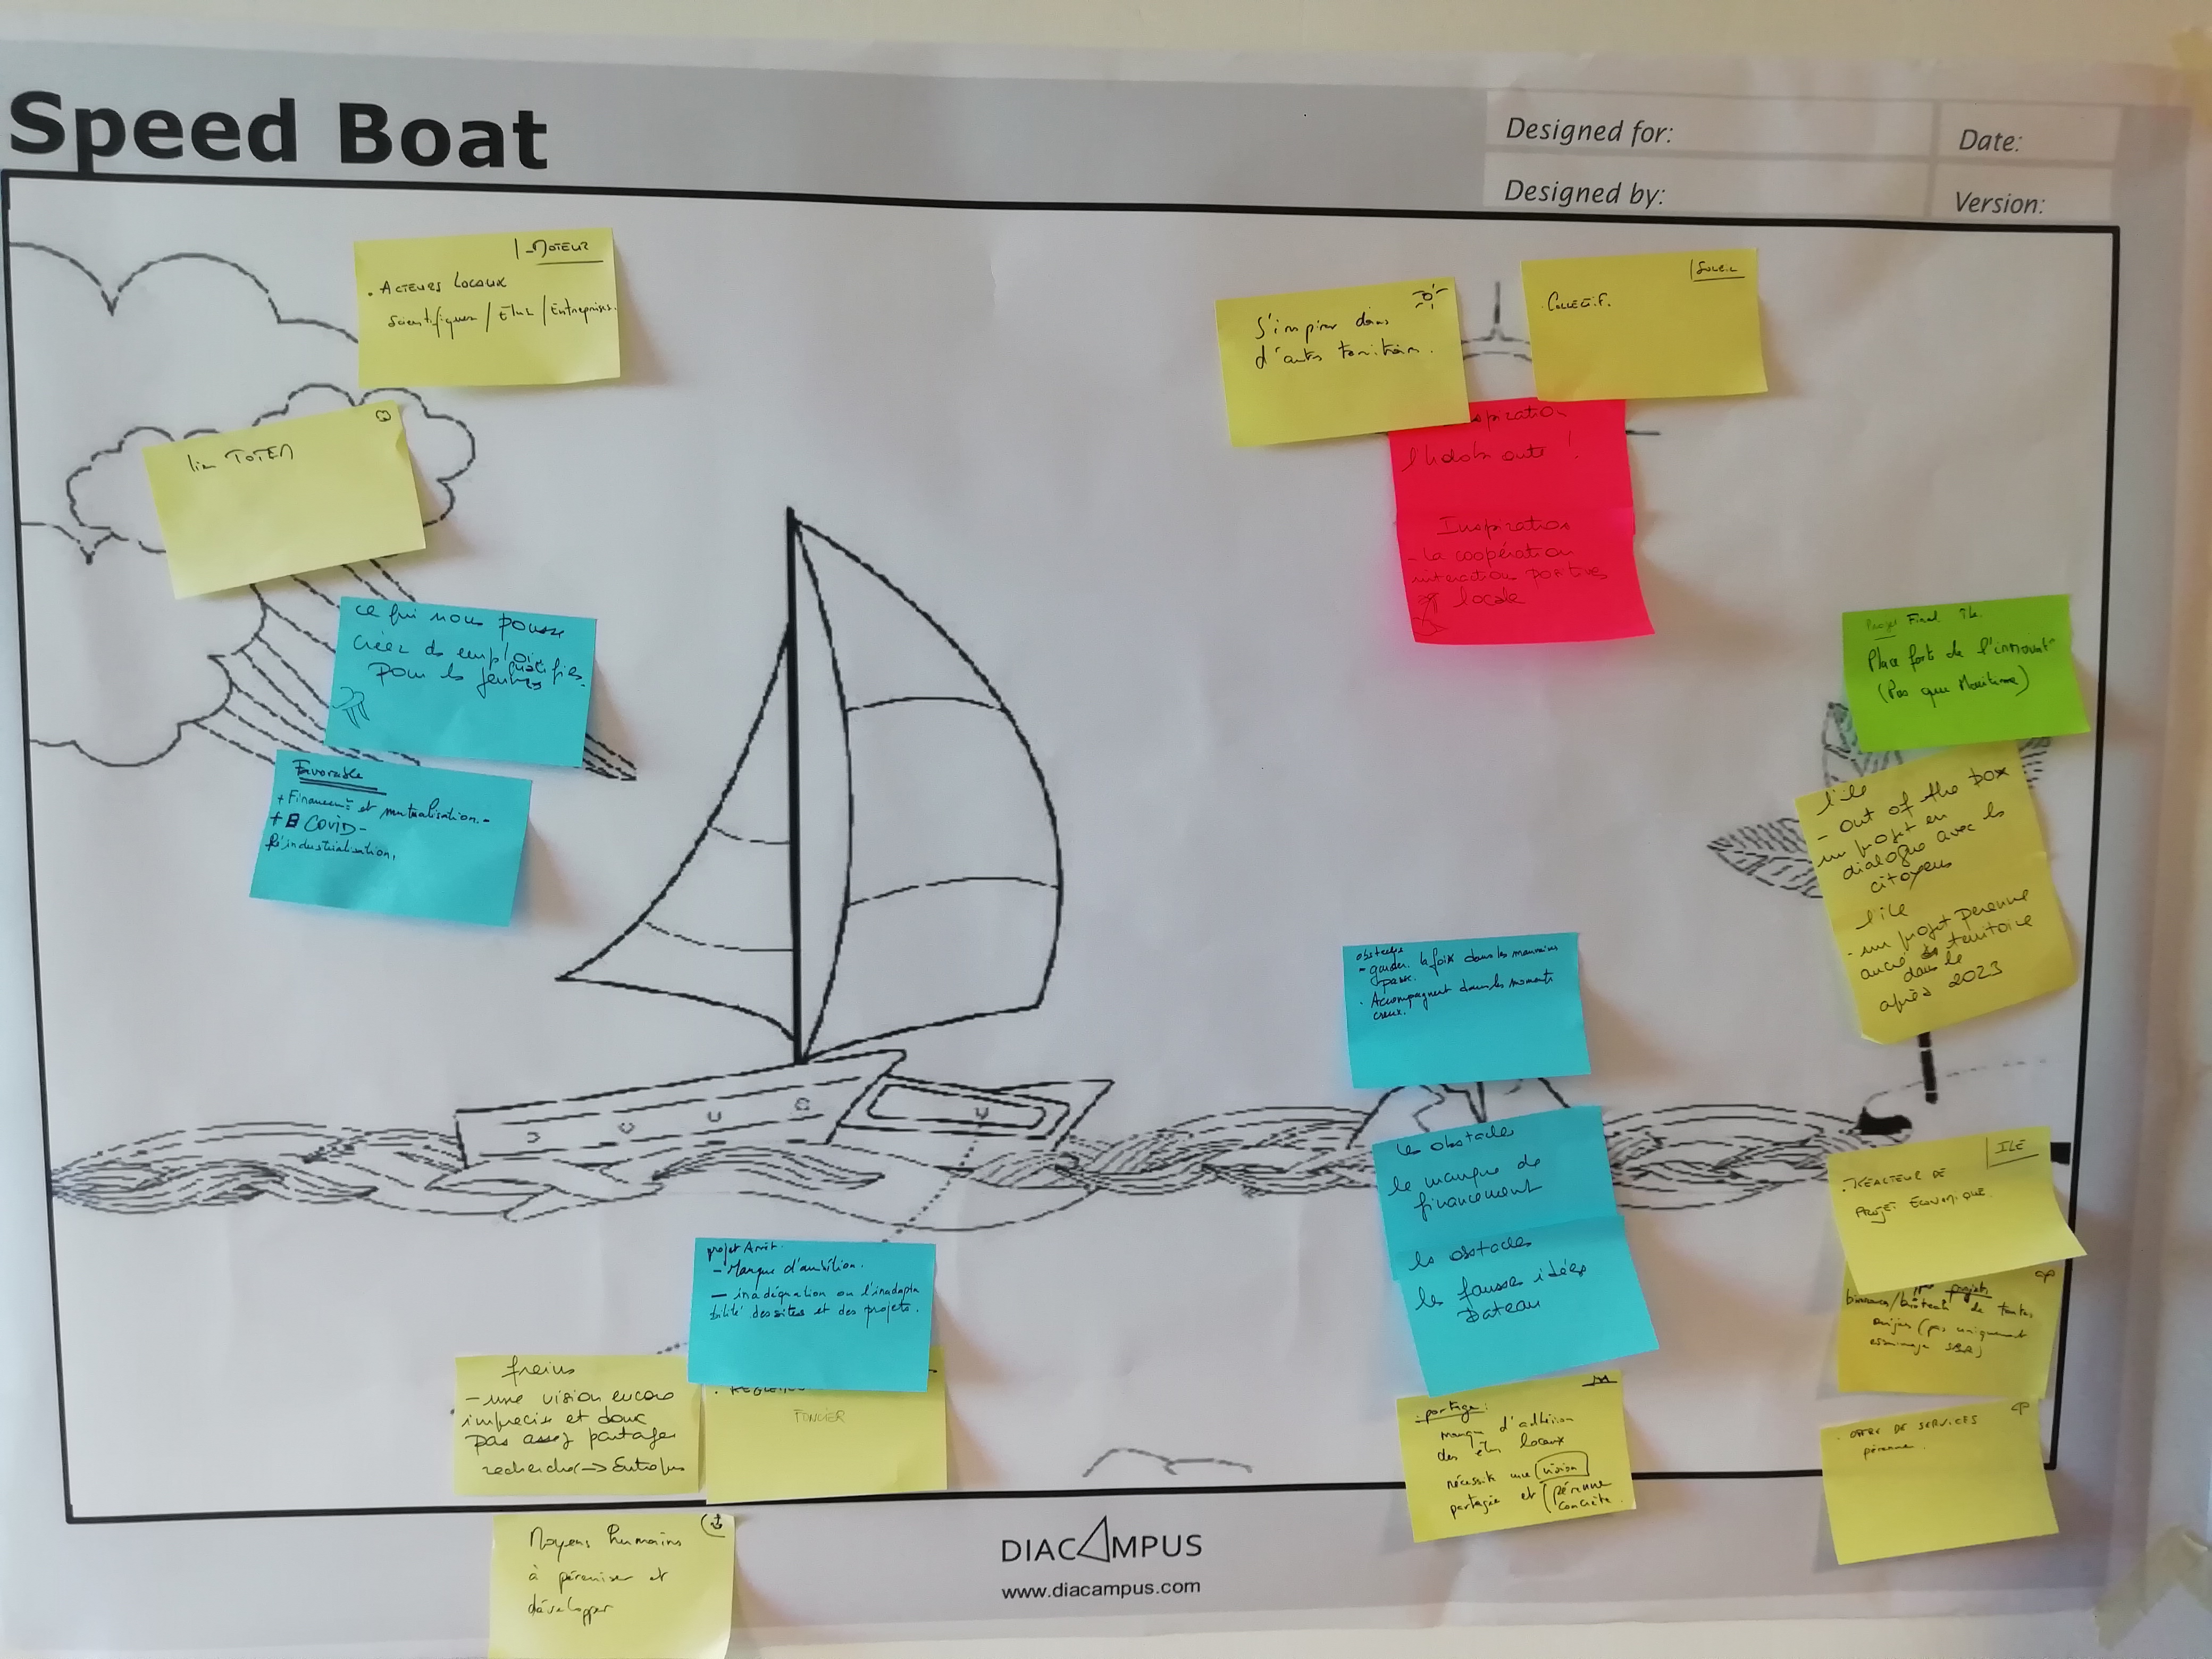 Speed Boat
Designed for:
Date:
Designed by:
Version:
1-MOTEUR
. ACTEURS LOCAUX
Scientifiques / Élus / Entreprises.
TOTEM
ce qui nous pousse
créer des emplois
qualifiés.
pour les jeunes
Favorable
+ Financemt et mutualisation.-
+ COVID-
Réindustrialisation,
S'inspirer dans
d'autres territoires.
SOLEIL
. COLLECTIF.
spiration
!
Inspiration
- La coopération
interaction positives
locale
Projet Final île.
Place forte de l'innovat°
(Pas que Maritime)
l'île
- out of the box
un projet en
dialogue avec les
citoyens
l'île
- un projet perenne
ancré
territoire
dans le
après 2023
obstacles
- garder la foix dans les mauvaises
passe.
. Accompagnent dans les moments
creux.
les obstacles
le manque de
financement
les obstacles
les fausses idées
Bateau
portage:
manque d'adhésion
des élus locaux
nécessite une vision
partagée et pérenne
concrète.
ILE
. REACTEUR DE
PROJET ECONOMIQUE
projets
de toutes
(pas uniquement
. OFFRE DE SERVICES
pérenne.
projet Arrêt.
- Manque d'ambition.
- inadéquation ou l'inadapta
bilité des sites et des projets.
freins
- une vision encore
imprecise et donc
pas assez partagée
recherche -> Entrepses
FONCIER
Moyens humains
à pérenniser et
développer
DIACAMPUS
www.diacampus.com